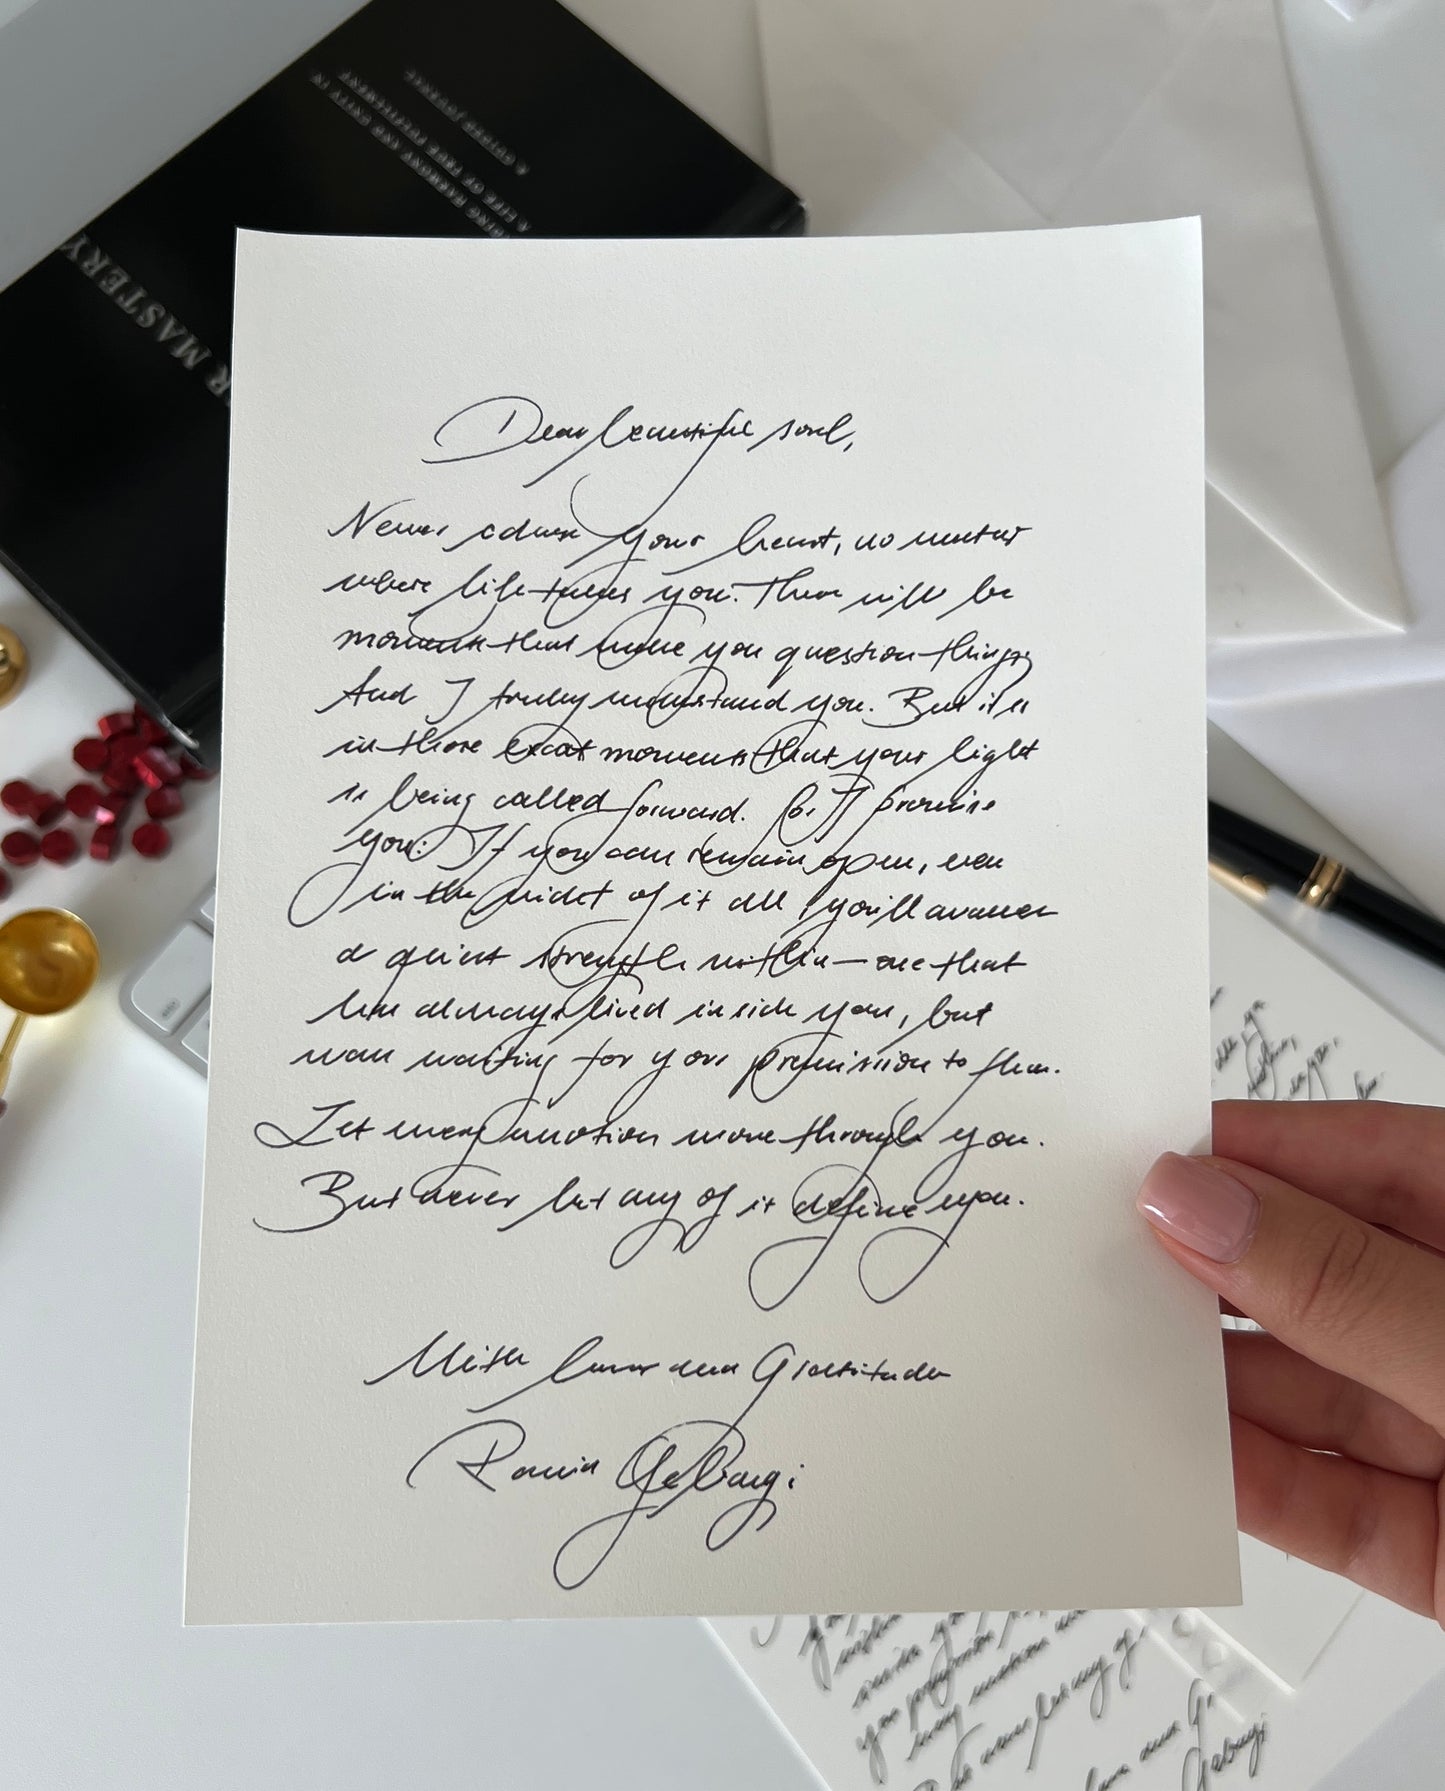 R MASTERY
HARMONY AND UNITY IN
A LIFE OF TRUE FULFILLMENT
A GUIDED JOURNAL
Dear beautiful soul,
Never your heart, no matter
where life takes you. There will be
moments that make you question things
And I truly understand you. But it is
in those exact moments that your light
is being called forward. I promise
you: If you can remain open, even
in the midst of it all, you'll
a quiet strength within — one that
has always lived inside you, but
was waiting for your premission to
Let every emotion move through you.
But never let any of it define you.
With love and Gratitude